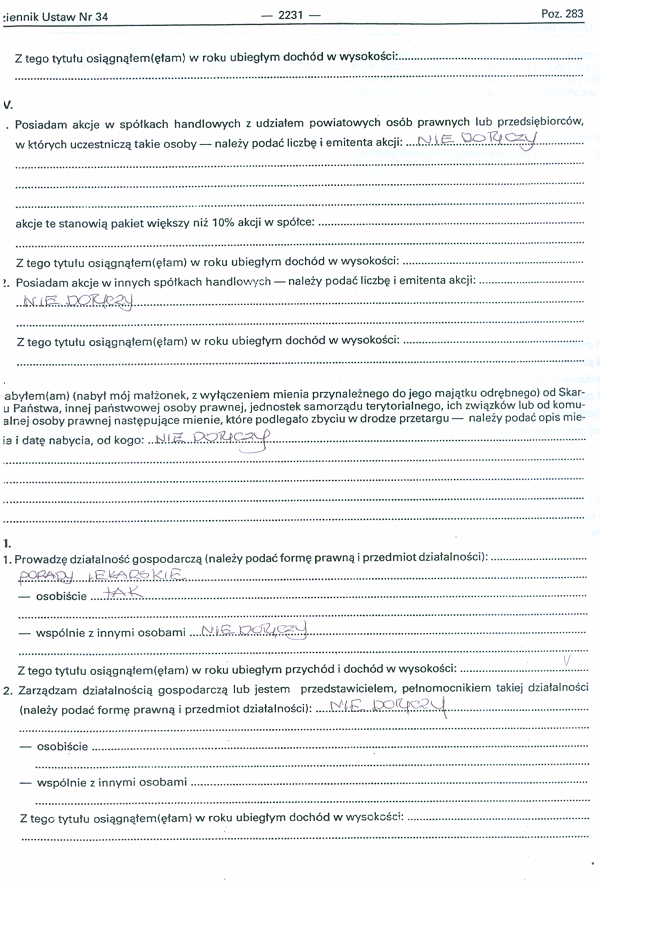 ziennik Ustaw Nr 34 — 2231 — Poz. 283
Z tego tytułu osiągnąłem(ęłam) w roku ubiegłym dochód w wysokości:
V.
. Posiadam akcje w spółkach handlowych z udziałem powiatowych osób prawnych lub przedsiębiorców,
w których uczestniczą takie osoby — należy podać liczbę i emitenta akcji: NIE DOTYCZY
akcje te stanowią pakiet większy niż 10% akcji w spółce:
Z tego tytułu osiągnąłem(ęłam) w roku ubiegłym dochód w wysokości:
2. Posiadam akcje w innych spółkach handlowych — należy podać liczbę i emitenta akcji:
NIE DOTYCZY
Z tego tytułu osiągnąłem(ęłam) w roku ubiegłym dochód w wysokości:
abyłem(am) (nabył mój małżonek, z wyłączeniem mienia przynależnego do jego majątku odrębnego) od Skar-
u Państwa, innej państwowej osoby prawnej, jednostek samorządu terytorialnego, ich związków lub od komu-
alnej osoby prawnej następujące mienie, które podlegało zbyciu w drodze przetargu — należy podać opis mie-
ia i datę nabycia, od kogo: NIE DOTYCZY
1.
1. Prowadzę działalność gospodarczą (należy podać formę prawną i przedmiot działalności):
PORADY LEKARSKIE
— osobiście TAK
— wspólnie z innymi osobami NIE DOTYCZY
Z tego tytułu osiągnąłem(ęłam) w roku ubiegłym przychód i dochód w wysokości:
2. Zarządzam działalnością gospodarczą lub jestem przedstawicielem, pełnomocnikiem takiej działalności
(należy podać formę prawną i przedmiot działalności): NIE DOTYCZY
— osobiście
— wspólnie z innymi osobami
Z tego tytułu osiągnąłem(ęłam) w roku ubiegłym dochód w wysokości: